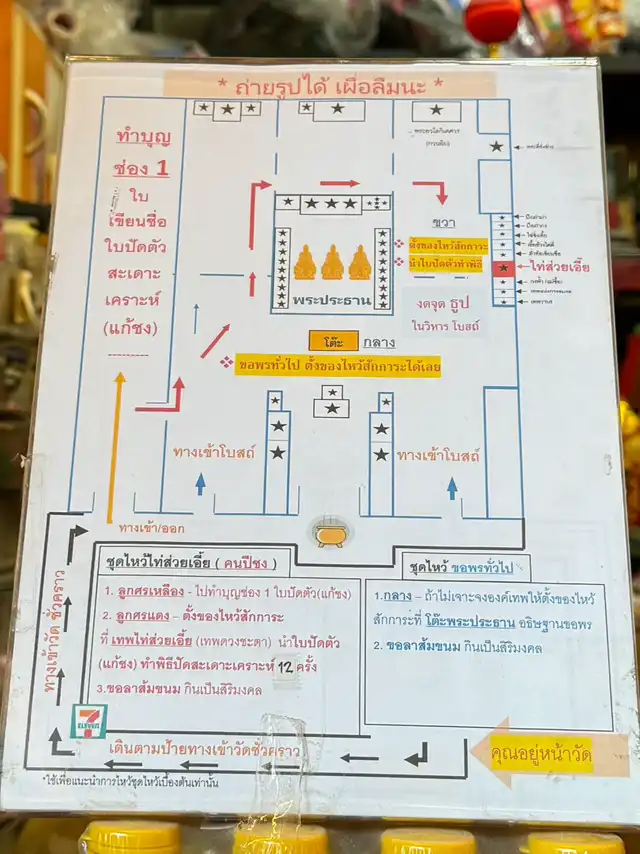 * ถ่ายรูปได้ เผื่อลืมนะ *
ทำบุญ
ช่อง 1
ใบ
เขียนชื่อ
ใบปัดตัว
สะเดาะ
เคราะห์
(แก้ชง)
ขวา
ตั้งของไหว้สักการะ
นำใบปัดตัวทำพิธี
ไท่ส่วยเอี้ย
พระประธาน
งดจุด ธูป
ในวิหาร โบสถ์
โต๊ะ กลาง
ขอพรทั่วไป ตั้งของไหว้สักการะได้เลย
ทางเข้าโบสถ์
ทางเข้าโบสถ์
ทางเข้า/ออก
ทางเข้าวัด ชั่วคราว
ชุดไหว้ไท่ส่วยเอี้ย ( คนปีชง )
1. ลูกศรเหลือง - ไปทำบุญช่อง 1 ใบปัดตัว(แก้ชง)
2. ลูกศรแดง - ตั้งของไหว้สักการะ
ที่ เทพไท่ส่วยเอี้ย (เทพดวงชะตา) นำใบปัดตัว
(แก้ชง) ทำพิธีปัดสะเดาะเคราะห์ 12 ครั้ง
3.ขอลาส้มขนม กินเป็นสิริมงคล
ชุดไหว้ ขอพรทั่วไป
1.กลาง - ถ้าไม่เจาะจงองค์เทพให้ตั้งของไหว้
สักการะที่ โต๊ะพระประธาน อธิษฐานขอพร
2. ขอลาส้มขนม กินเป็นสิริมงคล
7
ELEVEN
เดินตามป้ายทางเข้าวัดชั่วคราว
คุณอยู่หน้าวัด
*ใช้เพื่อแนะนำการไหว้ชุดไหว้เบื้องต้นเท่านั้น